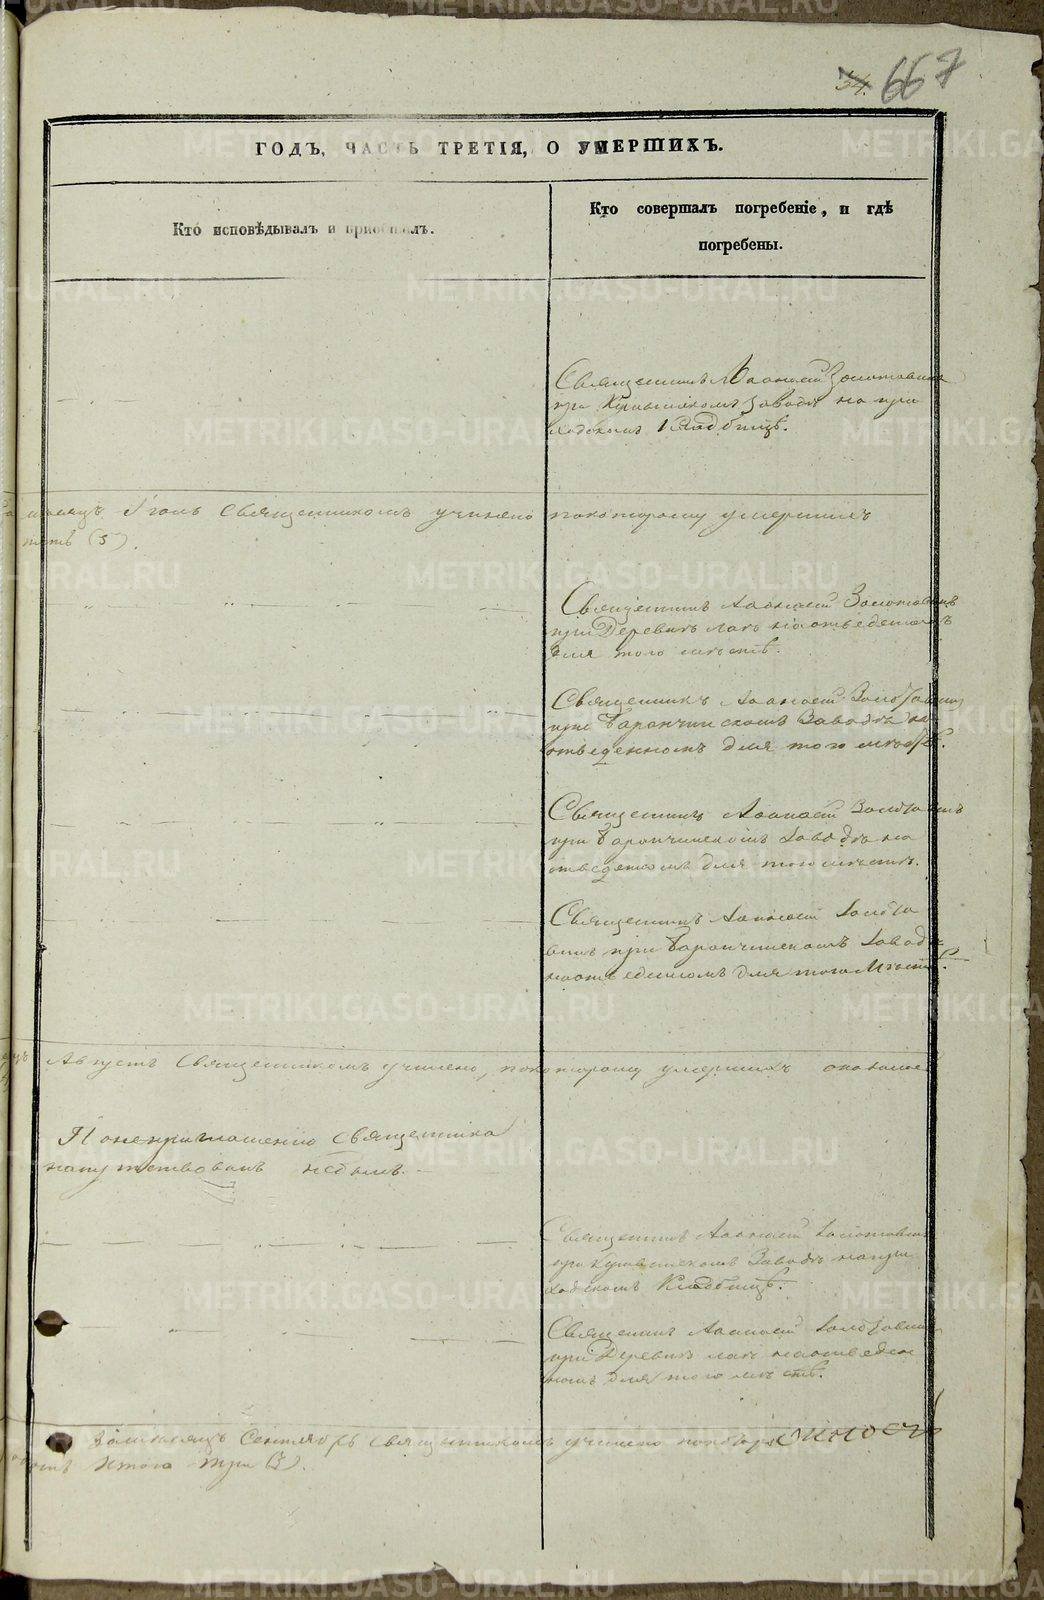 667
ГОДЪ, ЧАСТЬ ТРЕТІЯ, О УМЕРШИХЪ.
Кто исповѣдывалъ и пріобщалъ.
Кто совершалъ погребеніе, и гдѣ
погребены.
Священникъ Аѳанасій Золотавинъ
при Кушвинскомъ Заводѣ на при
ходскомъ Кладбищѣ.
мѣсяцъ Іюль Священникомъ учинено покоторому умершихъ
(5).
Священникъ Аѳанасій Золотавинъ
при Деревнѣ наотведенномъ
для того мѣстѣ.
Священникъ Аѳанасій Золотавинъ
при Баранчинскомъ Заводѣ на
отведенномъ для того мѣстѣ.
Священникъ Аѳанасій Золотавинъ
при Баранчинскомъ Заводѣ на
отведенномъ для того мѣстѣ.
Священникъ Аѳанасій Золота
винъ при Баранчинскомъ Заводѣ
наотведенномъ для того Мѣстѣ.
Августъ Священникомъ учинено, покоторому умершихъ оказалось
По неприглашенію Священника
напутствованъ небылъ.
Священникъ Аѳанасій Золотавинъ
при Кушвинскомъ Заводѣ напри
ходскомъ Кладбищѣ.
Священникъ Аѳанасій Золотавинъ
при Деревнѣ наотведен
номъ для того мѣстѣ.
За мѣсяцъ Сентябрь священникомъ учинено
Итого три (3).
METRIKI.GASO-URAL.RU